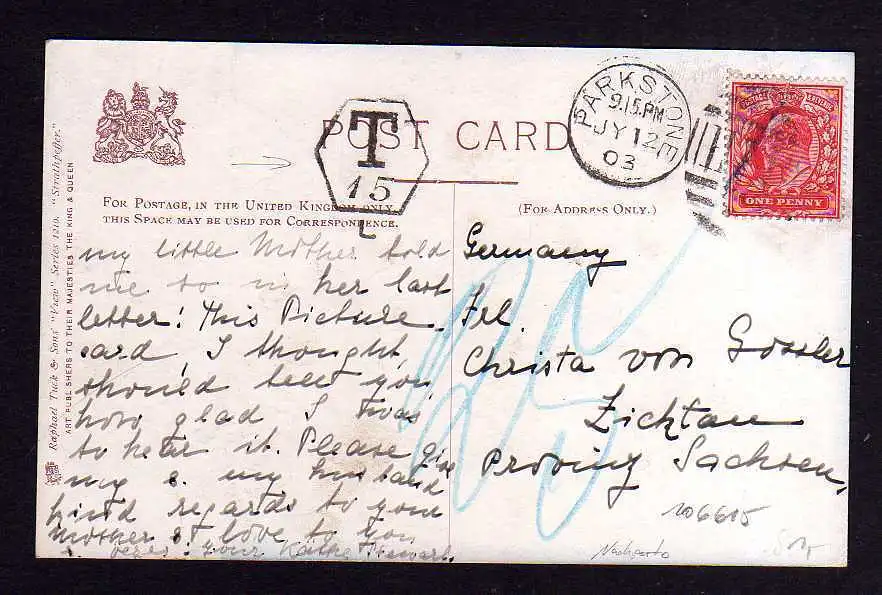 POST CARD
T
15
L
PARKSTONE
9.15.PM
JY 12
03
POSTAGE REVENUE
ONE PENNY
FOR POSTAGE, IN THE UNITED KINGDOM ONLY,
THIS SPACE MAY BE USED FOR CORRESPONDENCE.
(FOR ADDRESS ONLY.)
Raphael Tuck & Sons' "View" Series 1219. "Strathpeffer."
ART PUBLISHERS TO THEIR MAJESTIES THE KING & QUEEN
my little Mother told
me so in her last
letter! This Picture
card I thought
should tell you
how glad I was
to hear it. Please give
my & my husband
kind regards to your
Mother & love to you
your Käthe
Germany
Frl.
Christa von Gossler
Zichtau
Provinz Sachsen.
25
106615
Nachporto